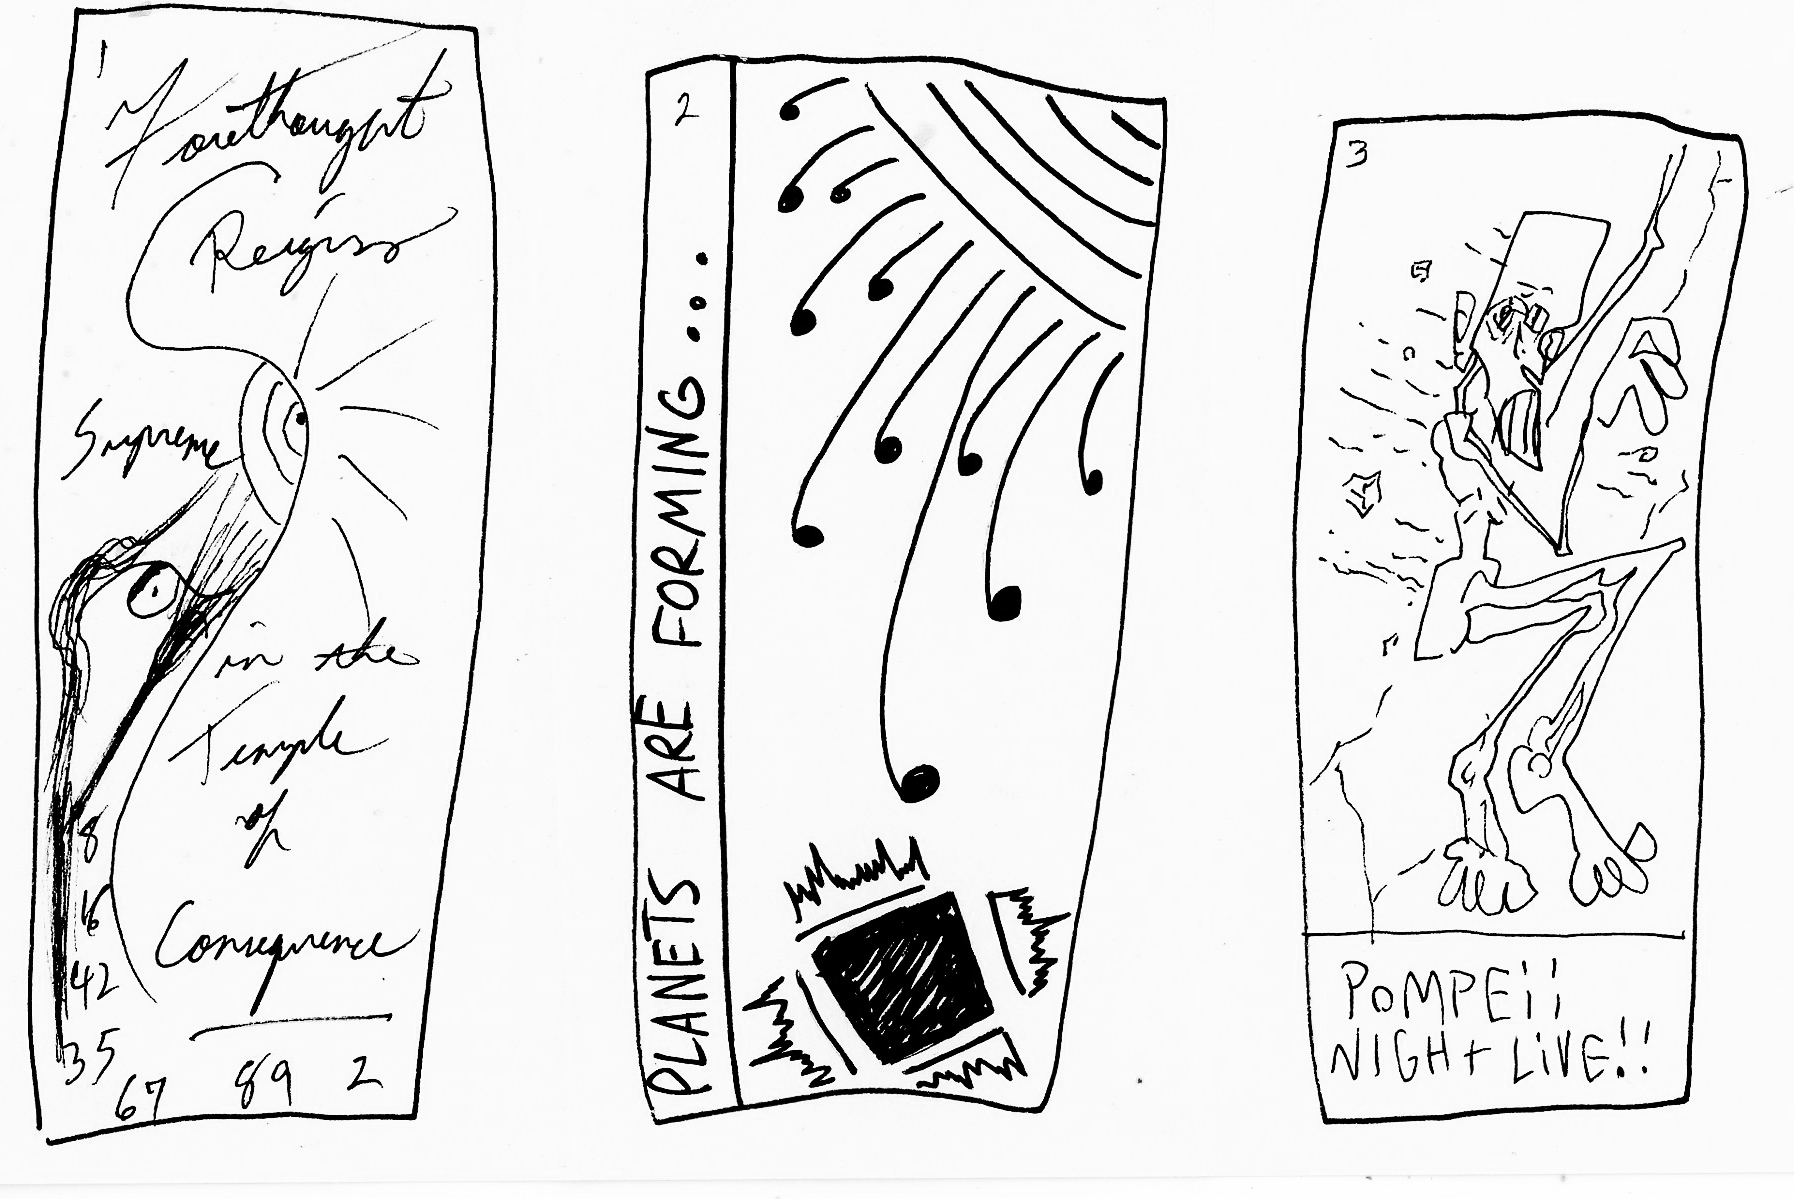 1
Forethought
Reigns
Supreme
in the
Temple
of
Consequence
8
16
42
35
67
89
2
2
PLANETS ARE FORMING...
3
POMPEii
NIGHT LiVE!!